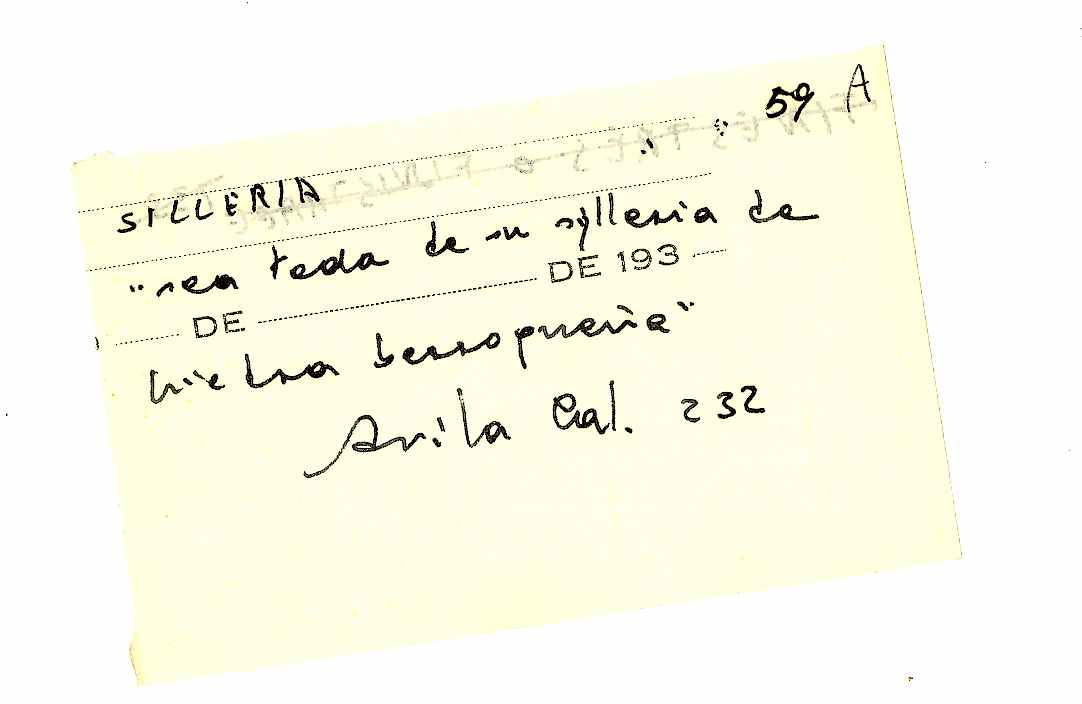 59 A
SILLERIA
"sea toda de su sylleria de
DE DE 193
piedra berroqueña"
Avila Cal. 232